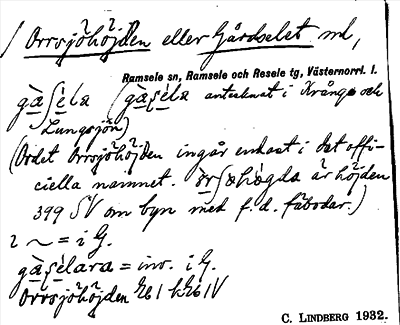 / Orrsjöhöjden eller Gårdselet ml,
Ramsele sn, Ramsele och Resele tg, Västernorrl. l.
gàʃèla (gàsèla antecknat i Krånge och
Lungsjön)
(Ordet Orrsjöhöjden ingår enbart i det offi-
ciella namnet. är höjden
399 SV om byn med f.d. fäbodar.)
2 ~ = i G.
gàsèlara = inv. i G.
Orrsjöhöjden
C. LINDBERG 1932.